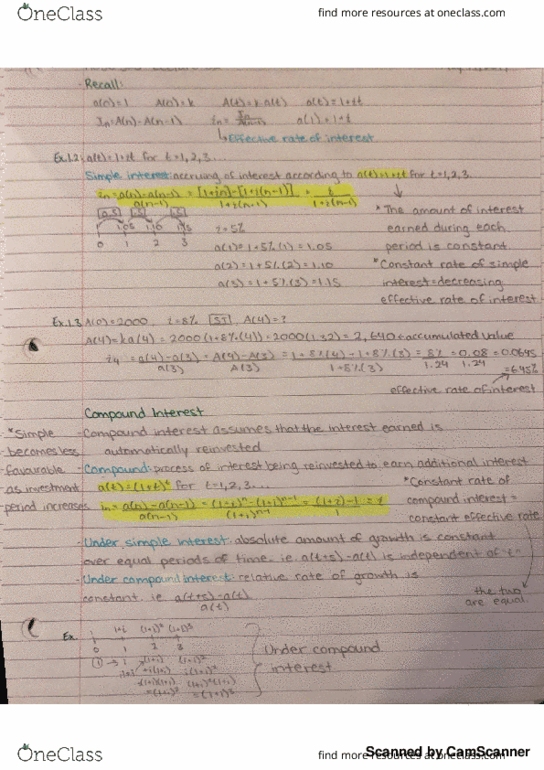 OneClass
find more resources at oneclass.com
Recall:
a(0)=1 A(0)=k A(t)=k·a(t) a(t)=1+it
In=A(n)-A(n-1) a(1)=1+i
↳Effective rate of interest
Ex.1.2: a(t)=1+it for t=1,2,3...
Simple interest: accruing of interest according to a(t)=1+it for t=1,2,3.
in=a(n)-a(n-1) = [1+in]-[1+i(n-1)] = i
a(n-1) 1+i(n-1) 1+i(n-1)
1 1.05 1.10 1.15 i=5%
0 1 2 3
a(1)=1+5%(1)=1.05
a(2)=1+5%(2)=1.10
a(3)=1+5%(3)=1.15
*The amount of interest
earned during each
period is constant.
*Constant rate of simple
interest=decreasing
effective rate of interest.
Ex.1.3 A(0)=2000, i=8% [SI], A(4)=?
A(4)=ka(4)=2000(1+8%(4))=2000(1.32)=2,640←accumulated value
i4=a(4)-a(3)=A(4)-A(3)=1+8%(4)-1+8%(3)=8%=0.08=0.0645
a(3) A(3) 1+8%(3) 1.24 1.24 =6.45%
effective rate of interest
Compound Interest
*Simple
becomes less
favourable
as investment
period increases
-Compound interest assumes that the interest earned is
automatically reinvested
-Compound: process of interest being reinvested to earn additional interest
a(t)=(1+i)^t for t=1,2,3,...
in=a(n)-a(n-1)=(1+i)^n-(1+i)^n-1=(1+i)-1=i
a(n-1) (1+i)^n-1 1
*Constant rate of
compound interest=
constant effective rate
the two
are equal.
-Under simple interest: absolute amount of growth is constant
over equal periods of time. ie a(t+s)-a(t) is independent of "t"
-Under compound interest: relative rate of growth is
constant. ie a(t+s)-a(t)
a(t)
Ex. 1 1+i (1+i)² (1+i)³
0 1 2 3
Under compound
interest
OneClass
find more resources at oneclass.com
Scanned by CamScanner